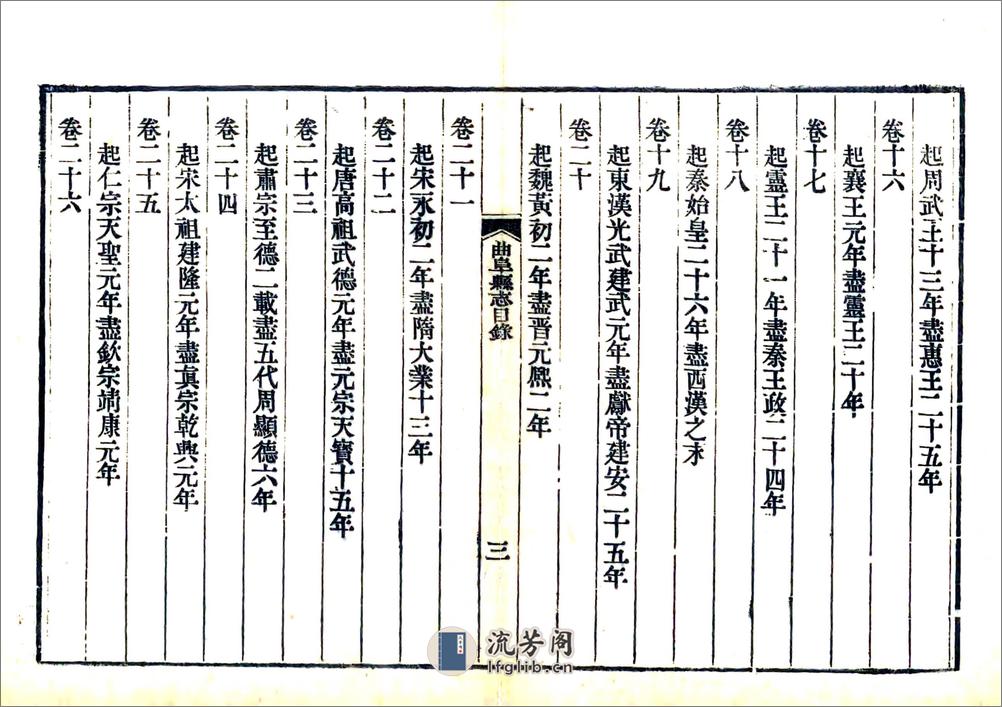 起周武王十三年盡惠王二十五年
卷十六
起襄王元年盡靈王二十年
卷十七
起靈王二十一年盡秦王政二十四年
卷十八
起秦始皇二十六年盡西漢之末
卷十九
起東漢光武建武元年盡獻帝建安二十五年
卷二十
起魏黃初二年盡晋元熙二年
曲阜縣志目錄
三
卷二十一
起宋永初二年盡隋大業十三年
卷二十二
起唐高祖武德元年盡元宗天寶十五年
卷二十三
起肅宗至德二載盡五代周顯德六年
卷二十四
起宋太祖建隆元年盡真宗乾興元年
卷二十五
起仁宗天聖元年盡欽宗靖康元年
卷二十六
流芳阁
lfglib.cn